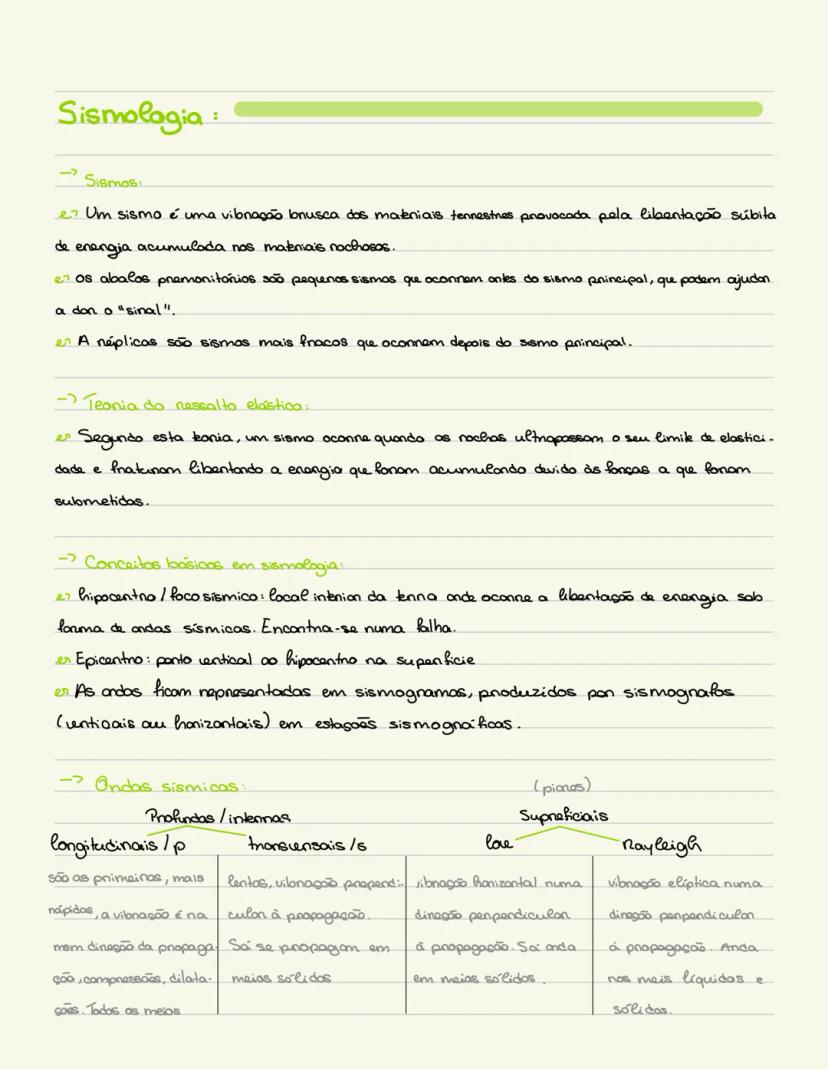 Sismologia :
→ Sismos:
Um sismo é uma vibração brusca dos materiais terrestres provocada pela libertação súbita
de energia acumulada nos materiais rochosos.
Os abalos premonitórios são pequenos sismos que ocorrem antes do sismo principal, que podem ajudar
a dar o "sinal".
A réplicas são sismos mais fracos que ocorrem depois do sismo principal.
→ Teoria do ressalto elástico:
Segundo esta teoria, um sismo ocorre quando as rochas ultrapassam o seu limite de elastici-
dade e fraturam libertando a energia que foram acumulando devido às forças a que foram
submetidas.
→ Conceitos básicos em sismologia:
hipocentro / foco sísmico : local interior da terra onde ocorre a libertação de energia sob
forma de ondas sísmicas. Encontra-se numa falha.
Epicentro : ponto vertical ao hipocentro na superfície
As ondas ficam representadas em sismogramas, produzidos por sismógrafos
(verticais ou horizontais) em estações sismográficas.
→ Ondas sísmicas: (piores)
Profundas / internas Supreficiais
longitudinais / p transversais /s love Rayleigh
são as primeiras, mais lentas, vibração perpendi- vibração horizontal numa vibração elíptica numa
rápidas, a vibração é na cular à propagação. direção perpendicular direção perpendicular
msm direção da propaga- Só se propagam em à propagação. Só anda à propagação. Anda
ção, compressões, dilata- meios sólidos em meios sólidos. nos meis líquidos e
ções. Todos os meios sólidos.